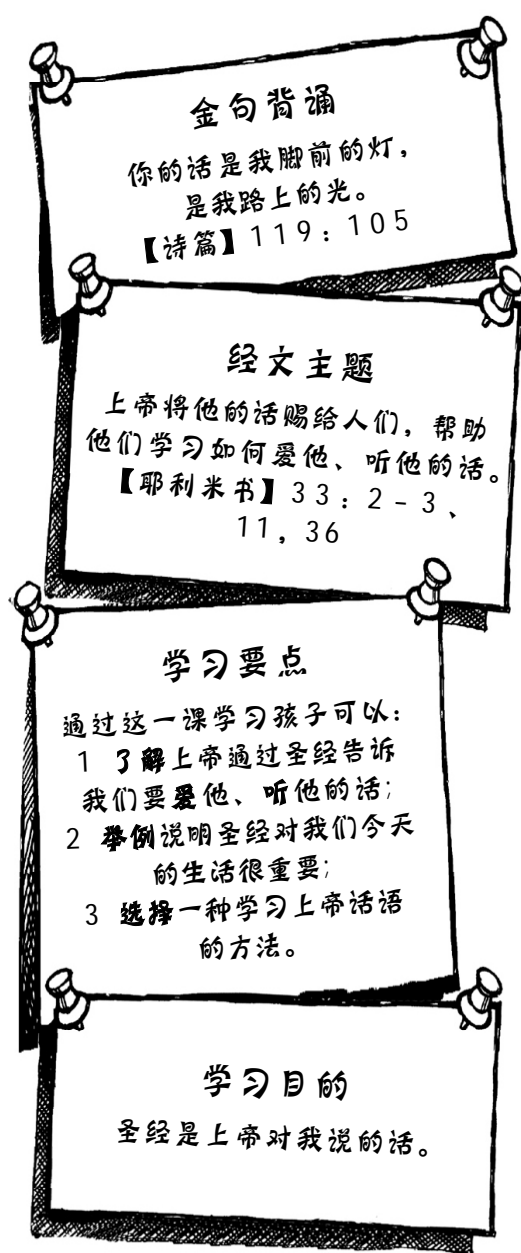 金句背诵
你的话是我脚前的灯，
是我路上的光。
【诗篇】119：105
经文主题
上帝将他的话赐给人们，帮助
他们学习如何爱他、听他的话。
【耶利米书】33：2-3、
11，36
学习要点
通过这一课学习孩子可以：
1 了解上帝通过圣经告诉
我们要爱他、听他的话；
2 举例说明圣经对我们今天
的生活很重要；
3 选择一种学习上帝话语
的方法。
学习目的
圣经是上帝对我说的话。